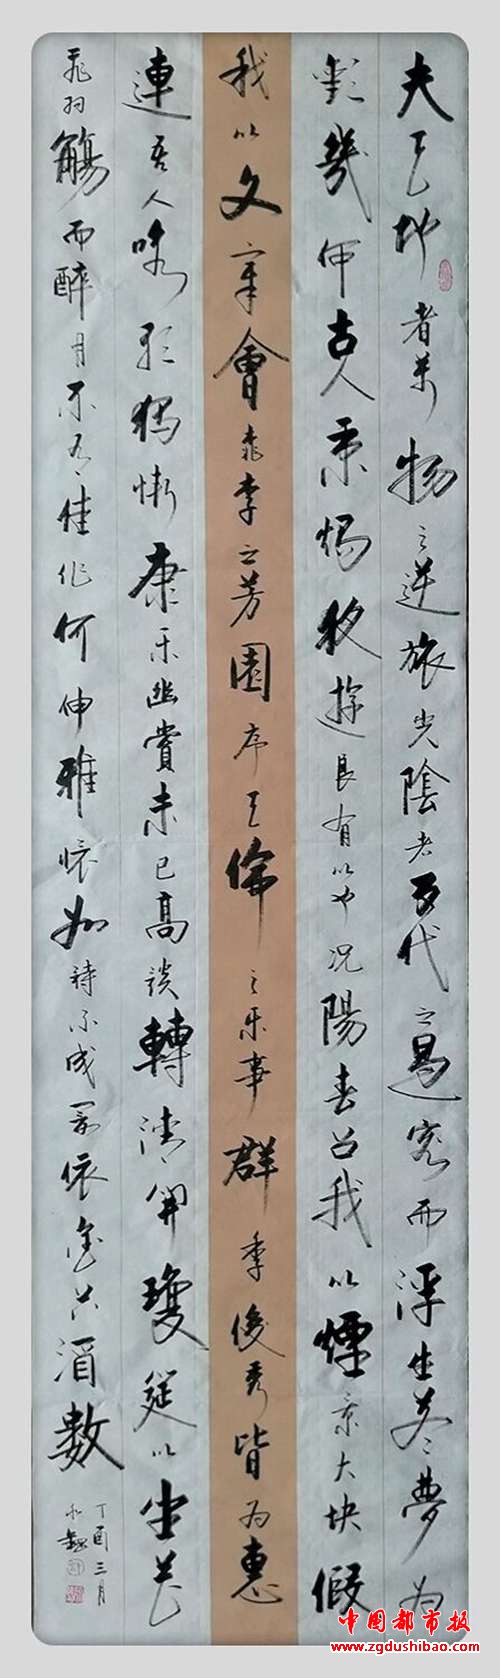 夫天地者萬物之逆旅光陰者百代之過客而浮生若夢为
歡幾何古人秉燭夜遊良有以也况陽春召我以煙景大块假
我以文章會桃李之芳園序天倫之乐事群季俊秀皆为惠
連吾人咏歌獨慚康乐幽賞未已高談轉清開瓊筵以坐花
飛羽觴而醉月不有佳作何伸雅懷如詩不成罰依金谷酒數
丁酉三月
中国都市报
www.zgdushibao.com